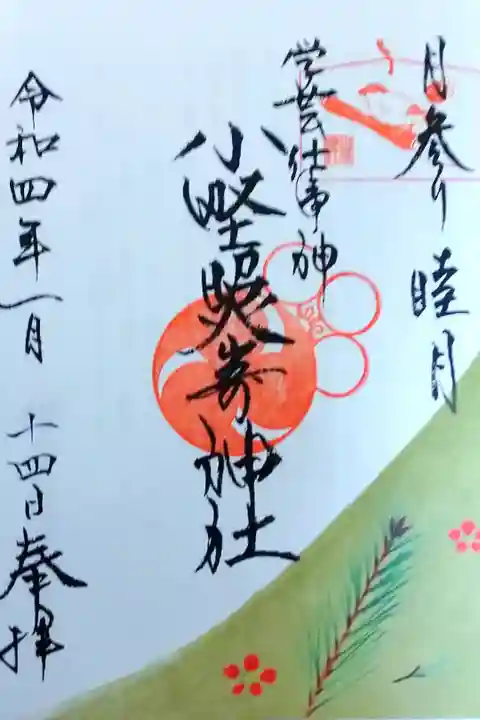 月参り 睦月
学芸仕事神
小野照崎神社
令和四年一月 十四日 奉拝